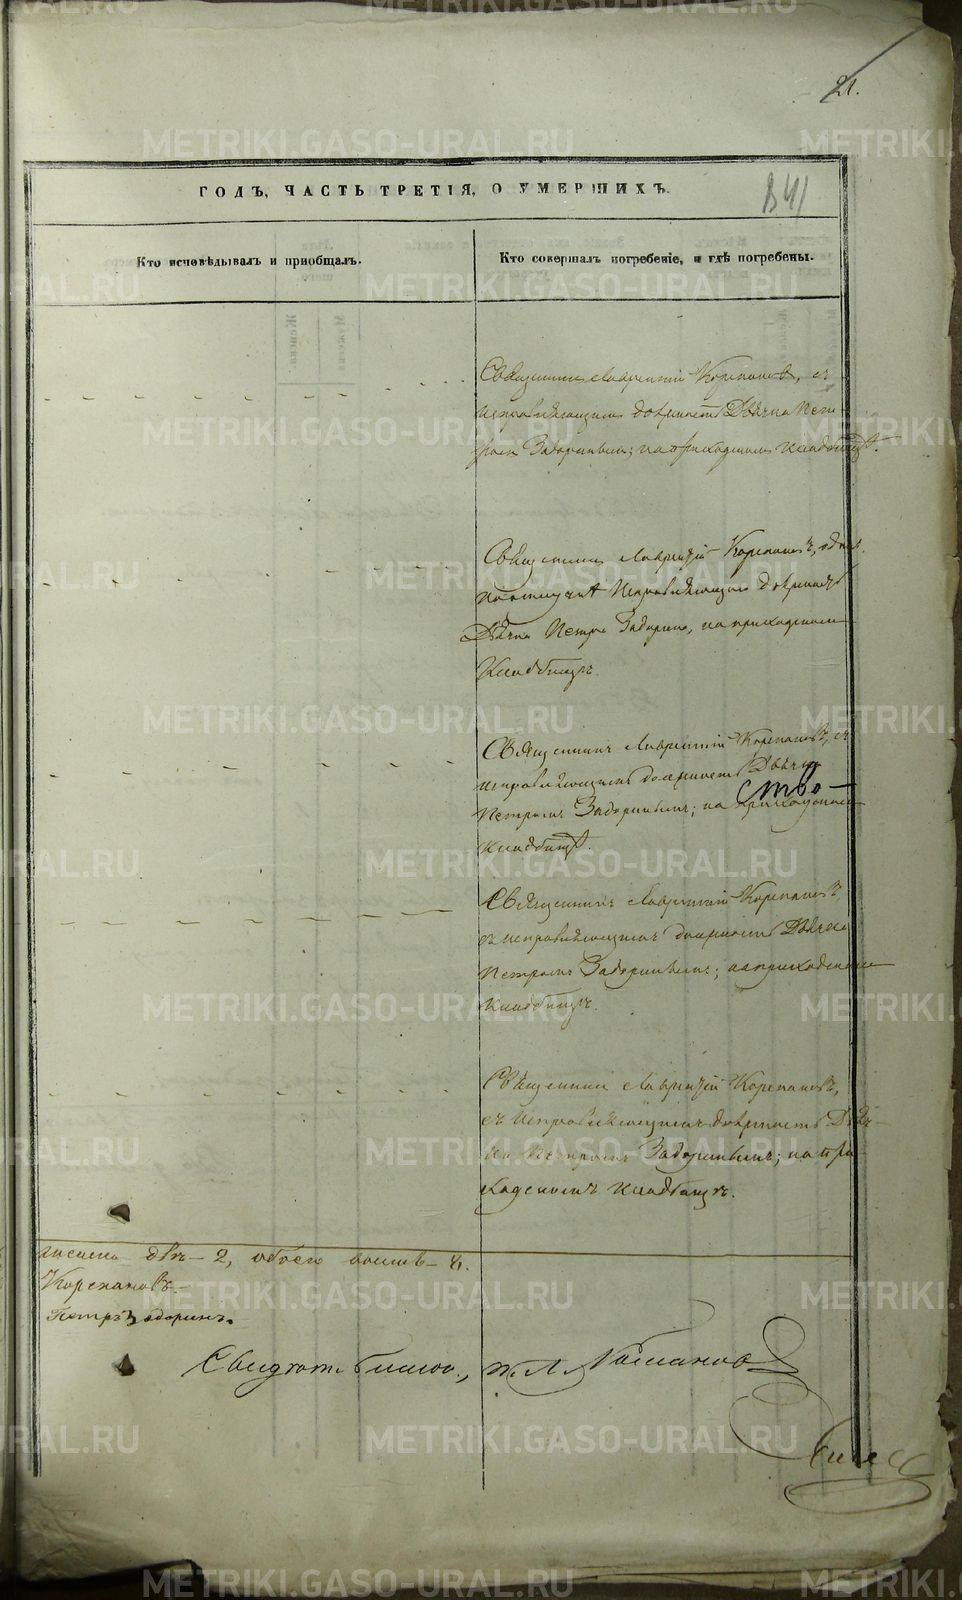 21.
ГОДЪ, ЧАСТЬ ТРЕТІЯ, О УМЕРШИХЪ.
841
Кто исповѣдывалъ и пріобщалъ.
Кто совершалъ погребеніе, и гдѣ погребены.
Священникъ Лаврентій Корепановъ, съ
исправляющимъ должность Дьячка Пет-
ромъ Задоринымъ; на приходскомъ кладбищѣ.
Священникъ Лаврентій Корепановъ,
исправляющаго должность
Дьячка Петра Задорина, на приходскомъ
кладбищѣ.
Священникъ Лаврентій Корепановъ, съ
исправляющимъ должность Дьячка
ство-
Петромъ Задоринымъ; на приходскомъ
кладбищѣ.
Священникъ Лаврентій Корепановъ,
съ исправляющимъ должность Дьячка
Петромъ Задоринымъ; на приходскомъ
кладбищѣ.
Священникъ Лаврентій Корепановъ,
съ исправляющимъ должность Дьяч-
ка Петромъ Задоринымъ; на при-
ходскомъ кладбищѣ.
двѣ - 2, обоего - 4.
Корепановъ.
Петръ Задоринъ.
Свидѣтельствовалъ,
METRIKI.GASO-URAL.RU